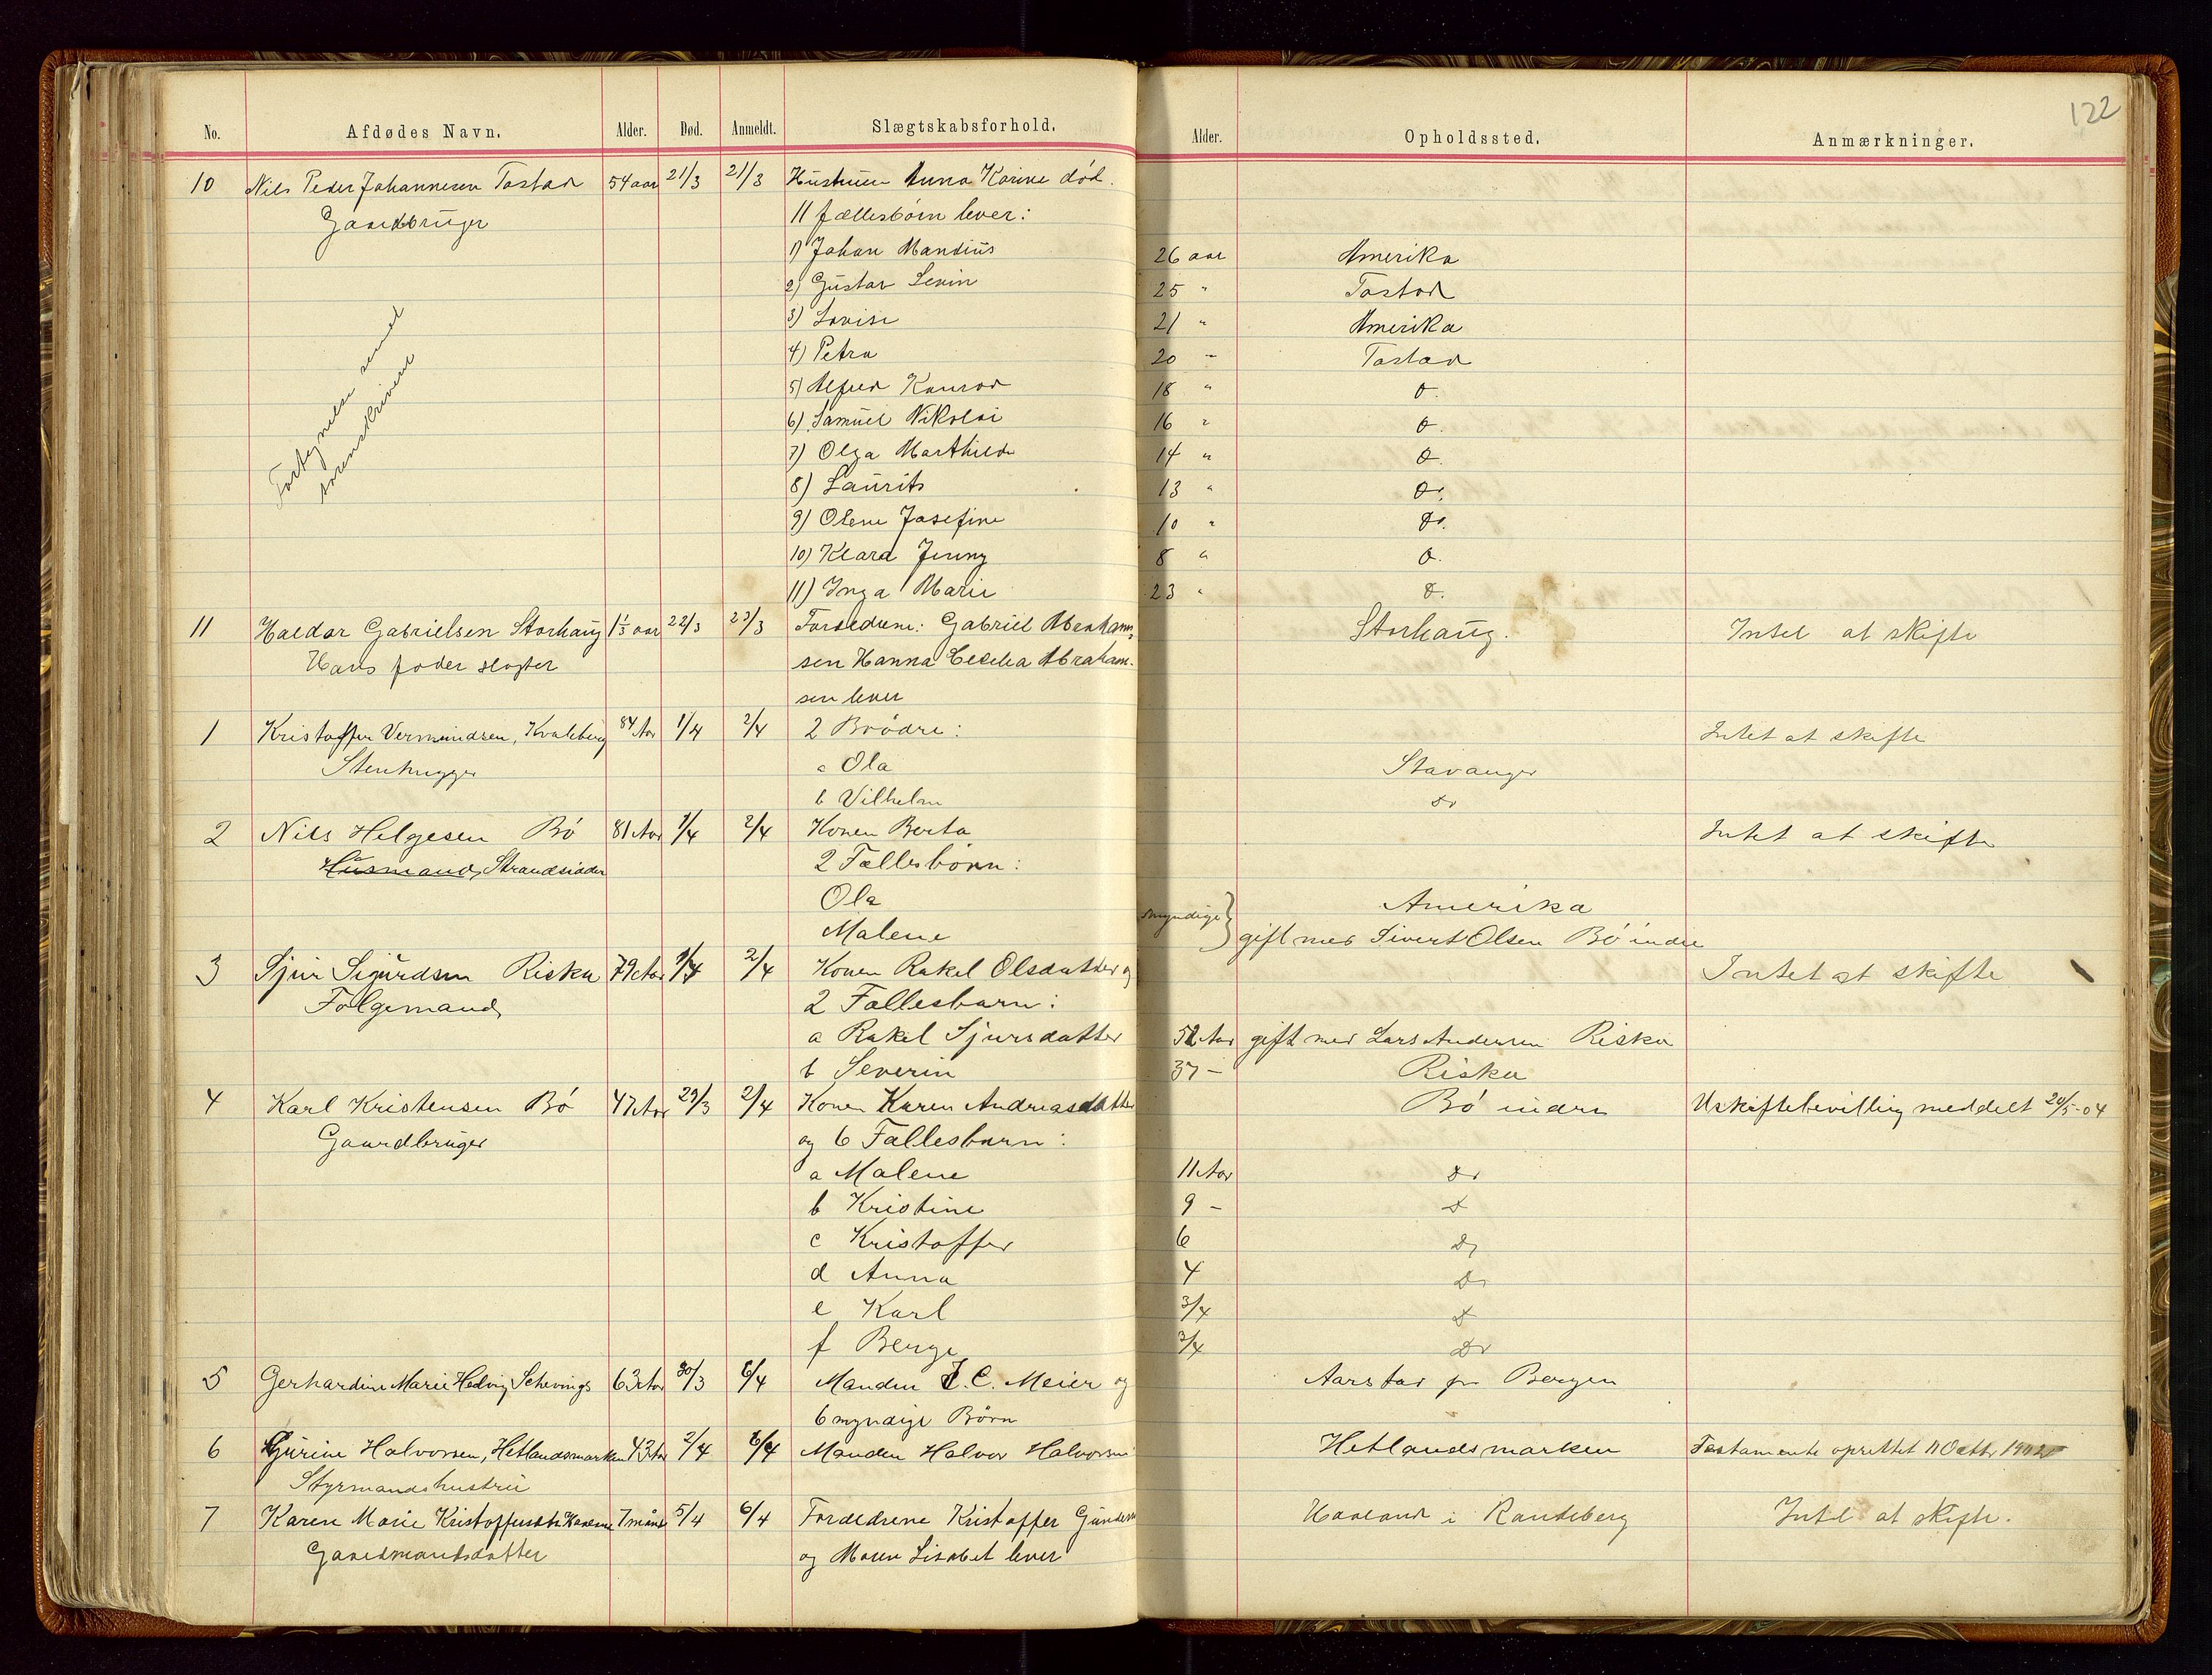 122
No. Afdødes Navn. Alder. Død. Anmeldt. Slægtskabsforhold. Alder. Opholdssted. Anmærkninger.
10 Nils Peder Johannesen Tastad 54 aar 21/3 21/3 Hustruen Anna Karine död.
Gaardbruger 11 fællesbörn lever:
1) Johan Mandius 26 aar Amerika
2) Gustav Severin 25 " Tastad
3) Lovise 21 " Amerika
4) Petra 20 - Tastad
5) Alfred Konrad 18 " d.
6) Samuel Nikolai 16 " d.
7) Olga Marthilde 14 " d.
8) Laurits 13 " do.
9) Olene Josefine 10 " do.
10) Klara Jenny 8 " d.
11) Inga Marie 23 " d.
Fortegnelse sendt
sorenskriveren
11 Haldor Gabrielsen Storhaug 1 1/3 aar 22/3 23/3 Forældrene: Gabriel Abraham- Storhaug. Intet at skifte
Hans fader slagter sen Hanna Cecilia Abraham-
sen lever
1 Kristoffer Vermundsen, Kvaleberg 84 Aar 1/4 2/4 2 Brödre: Intet at skifte
Stenhugger a Ola Stavanger
b Vilhelm do
2 Nils Helgesen Bö 81 Aar 1/4 2/4 Konen Berta Intet at skifte
Husmand, Strandsidder 2 Fællesbörn:
Ola myndige } Amerika
Malene gift med Sivert Olsen Bö indre
3 Sjur Sigurdsen Riska 79 Aar 1/4 2/4 Konen Rakel Olsdatter og Intet at skifte
Folgemand, 2 Fællesbarn:
a Rakel Sjursdatter 52 Aar gift med Lars Andersen Riska
b Severin 37 - Riska
4 Karl Kristensen Bö 47 Aar 29/3 2/4 Konen Karen Andreasdatter Bö indre Uskiftebevilling meddelt 20/5-04
Gaardbruger og 6 Fællesbarn:
a Malene 11 Aar do
b Kristine 9 - d
c Kristoffer 6 do
d Anna 4 do
e Karl 3/4 d
f Berge 3/4 do
5 Gerhardine Marie Hedvig Schevings 63 Aar 30/3 6/4 Manden J. C. Meier og Aarstad pr Bergen
6 myndige Börn
6 Gurine Halvorsen, Hetlandsmarken 43 Aar 2/4 6/4 Manden Halvor Halvorsen Hetlandsmarken Testamente oprettet 11 Octbr 1902
Styrmandshustru
7 Karen Marie Kristoffersdtr 7 måned 5/4 6/4 Forældrene Kristoffer Gundersen Haaland i Randeberg Intet at skifte.
Gaardmandsdatter og Maren Lisabet lever